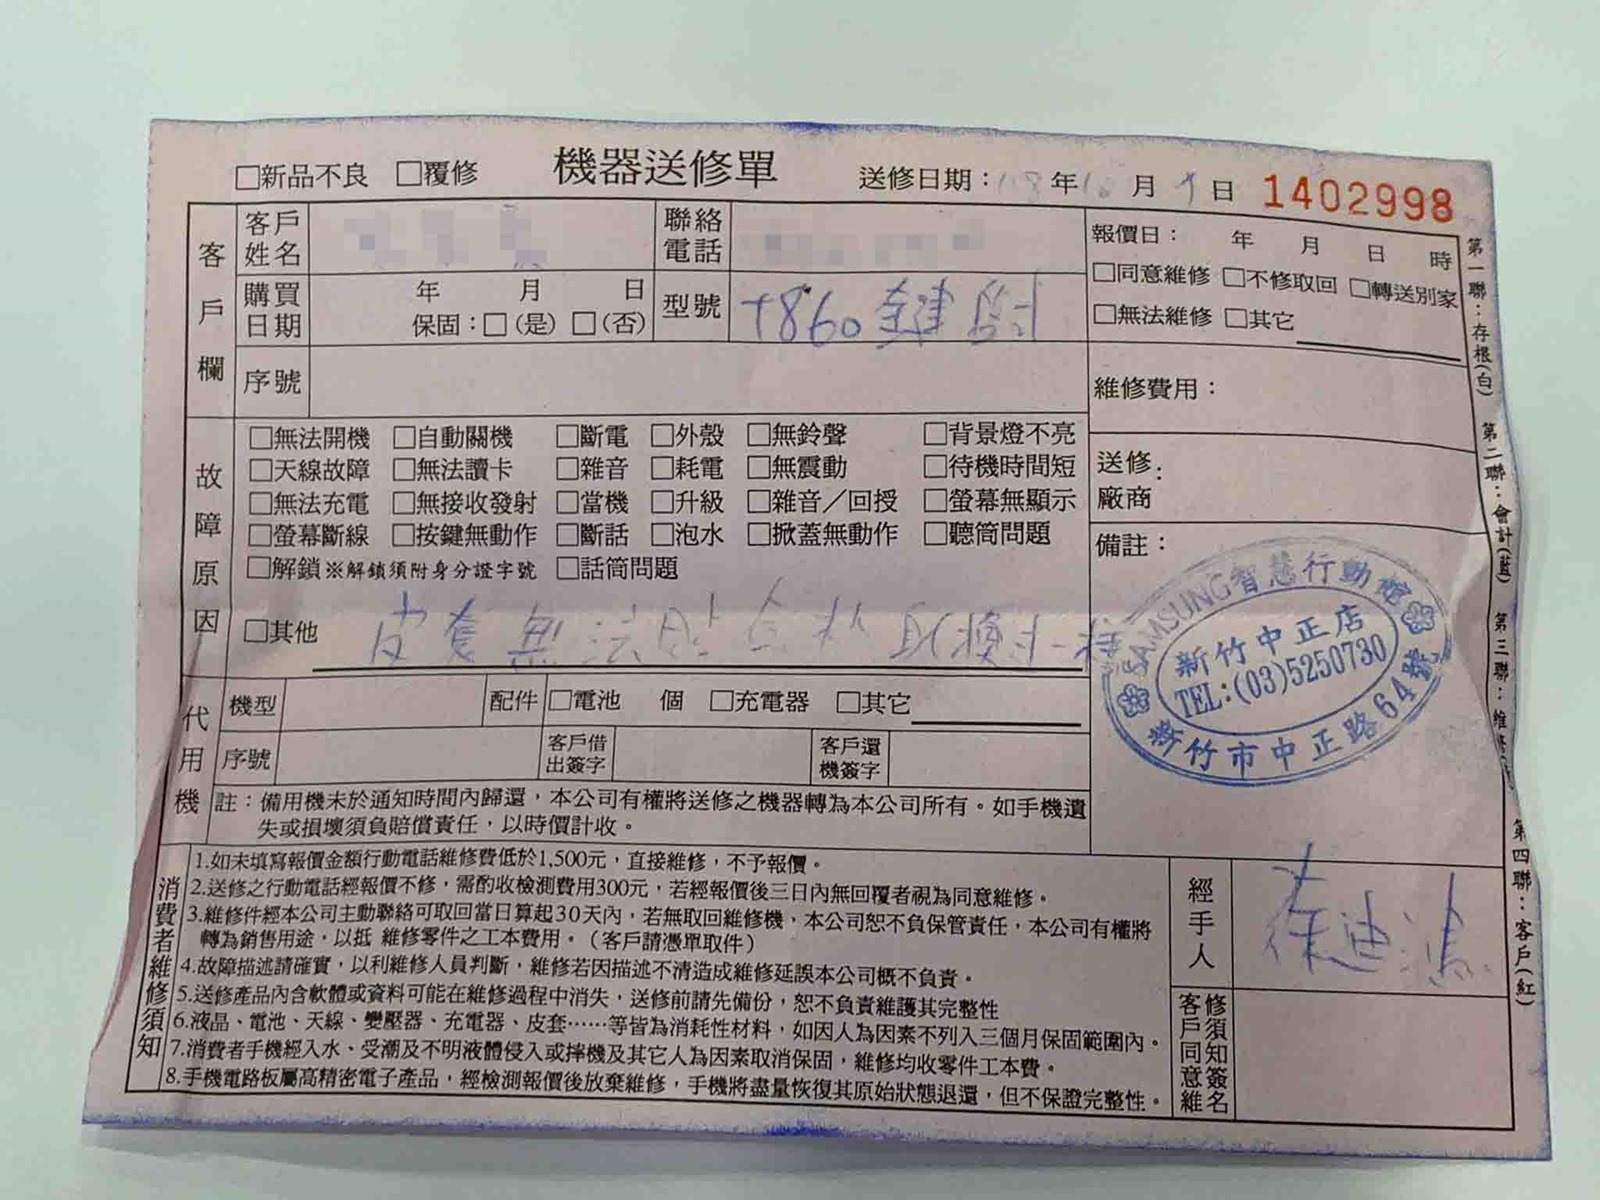 □新品不良 □覆修 機器送修單 送修日期： 年 月 日 1402998
客戶欄
客戶姓名
聯絡電話
購買日期 年 月 日
保固：□(是) □(否)
型號 T860 鍵盤
序號
報價日： 年 月 日 時
□同意維修 □不修取回 □轉送別家
□無法維修 □其它
維修費用：
送修廠商：
備註：
故障原因
□無法開機 □自動關機 □斷電 □外殼 □無鈴聲 □背景燈不亮
□天線故障 □無法讀卡 □雜音 □耗電 □無震動 □待機時間短
□無法充電 □無接收發射 □當機 □升級 □雜音／回授 □螢幕無顯示
□螢幕斷線 □按鍵無動作 □斷話 □泡水 □掀蓋無動作 □聽筒問題
□解鎖※解鎖須附身分證字號 □話筒問題
□其他 皮套無法
SAMSUNG智慧行動館
新竹中正店
TEL:(03)5250730
新竹市中正路64號
代用機
機型 配件 □電池 個 □充電器 □其它
序號 客戶借出簽字 客戶還機簽字
註：備用機未於通知時間內歸還，本公司有權將送修之機器轉為本公司所有。如手機遺
失或損壞須負賠償責任，以時價計收。
消費者維修須知
1.如未填寫報價金額行動電話維修費低於1,500元，直接維修，不予報價。
2.送修之行動電話經報價不修，需酌收檢測費用300元，若經報價後三日內無回覆者視為同意維修。
3.維修件經本公司主動聯絡可取回當日算起30天內，若無取回維修機，本公司恕不負保管責任，本公司有權將
轉為銷售用途，以抵 維修零件之工本費用。（客戶請憑單取件）
4.故障描述請確實，以利維修人員判斷，維修若因描述不清造成維修延誤本公司概不負責。
5.送修產品內含軟體或資料可能在維修過程中消失，送修前請先備份，恕不負責維護其完整性
6.液晶、電池、天線、變壓器、充電器、皮套……等皆為消耗性材料，如因人為因素不列入三個月保固範圍內。
7.消費者手機經入水、受潮及不明液體侵入或摔機及其它人為因素取消保固，維修均收零件工本費。
8.手機電路板屬高精密電子產品，經檢測報價後放棄維修，手機將盡量恢復其原始狀態退還，但不保證完整性。
經手人
客戶同意維修須知簽名
第一聯：存根(白)
第二聯：會計(藍)
第三聯：
第四聯：客戶(紅)